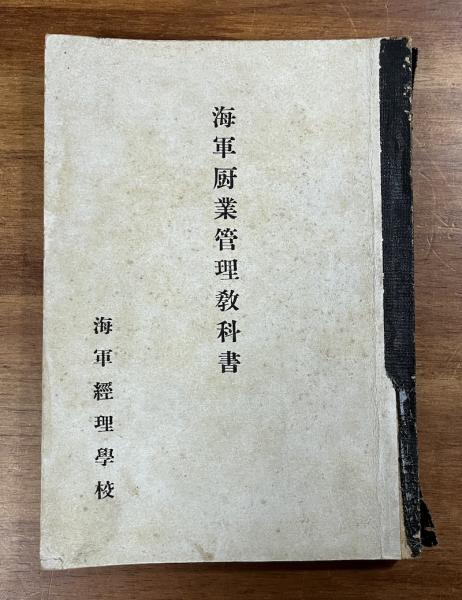 海軍厨業管理教科書
海軍經理學校